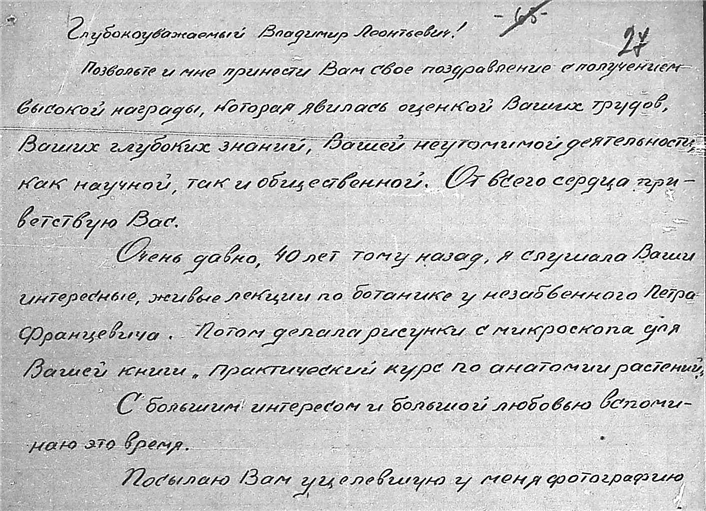 Глубокоуважаемый Владимир Леонтьевич! - 65 -
27
Позвольте и мне принести Вам свое поздравление с получением
высокой награды, которая явилась оценкой Ваших трудов,
Ваших глубоких знаний, Вашей неутомимой деятельности,
как научной, так и общественной. От всего сердца при-
ветствую Вас.
Очень давно, 40 лет тому назад, я слушала Ваши
интересные, живые лекции по ботанике у незабвенного Петра
Францевича. Потом делала рисунки с микроскопа для
Вашей книги „Практический курс по анатомии растений„
С большим интересом и большой любовью вспоми-
наю это время.
Посылаю Вам уцелевшую у меня фотографию